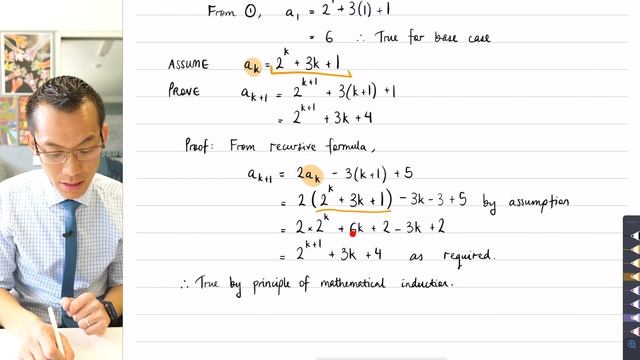 From ①, a₁ = 2¹ + 3(1) + 1
= 6 ∴ True for base case
ASSUME aₖ = 2ᵏ + 3k + 1
PROVE aₖ₊₁ = 2ᵏ⁺¹ + 3(k+1) + 1
= 2ᵏ⁺¹ + 3k + 4
Proof: From recursive formula,
aₖ₊₁ = 2aₖ - 3(k+1) + 5
= 2(2ᵏ + 3k + 1) - 3k - 3 + 5 by assumption
= 2 × 2ᵏ + 6k + 2 - 3k + 2
= 2ᵏ⁺¹ + 3k + 4 as required.
∴ True by principle of mathematical induction.